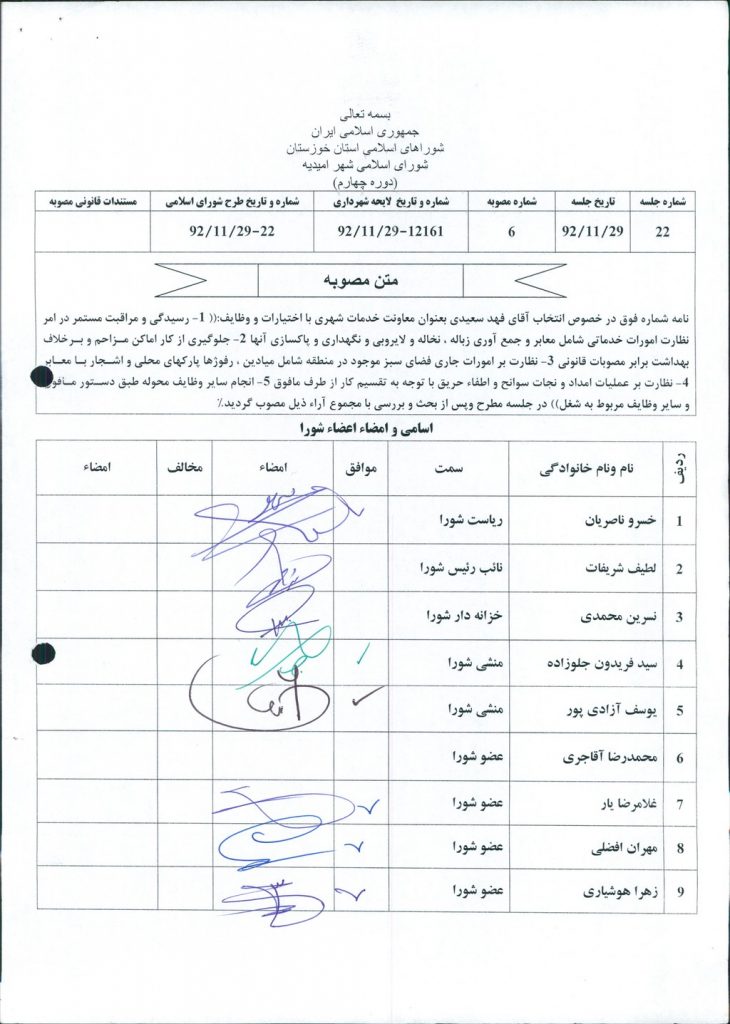 بسمه تعالی
جمهوری اسلامی ایران
شوراهای اسلامی استان خوزستان
شورای اسلامی شهر امیدیه
(دوره چهارم)
شماره جلسه تاریخ جلسه شماره مصوبه شماره و تاریخ لایحه شهرداری شماره و تاریخ طرح شورای اسلامی مستندات قانونی مصوبه
22 92/11/29 6 92/11/29-12161 92/11/29-22
متن مصوبه
نامه شماره فوق در خصوص انتخاب آقای فهد سعیدی بعنوان معاونت خدمات شهری با اختیارات و وظایف:(( 1- رسیدگی و مراقبت مستمر در امر
نظارت امورات خدماتی شامل معابر و جمع آوری زباله ، نخاله و لایروبی و نگهداری و پاکسازی آنها 2- جلوگیری از کار اماکن مزاحم و برخلاف
بهداشت برابر مصوبات قانونی 3- نظارت بر امورات جاری فضای سبز موجود در منطقه شامل میادین ، رفوژها پارکهای محلی و اشجار با معابر
4- نظارت بر عملیات امداد و نجات سوانح و اطفاء حریق با توجه به تقسیم کار از طرف مافوق 5- انجام سایر وظایف محوله طبق دستور مافوق
و سایر وظایف مربوط به شغل)) در جلسه مطرح وپس از بحث و بررسی با مجموع آراء ذیل مصوب گردید.٪
اسامی و امضاء اعضاء شورا
ردیف نام ونام خانوادگی سمت موافق امضاء مخالف امضاء
1 خسرو ناصریان ریاست شورا
2 لطیف شریفات نائب رئیس شورا
3 نسرین محمدی خزانه دار شورا
4 سید فریدون جلوزاده منشی شورا
5 یوسف آزادی پور منشی شورا
6 محمدرضا آقاجری عضو شورا
7 غلامرضا یار عضو شورا
8 مهران افضلی عضو شورا
9 زهرا هوشیاری عضو شورا